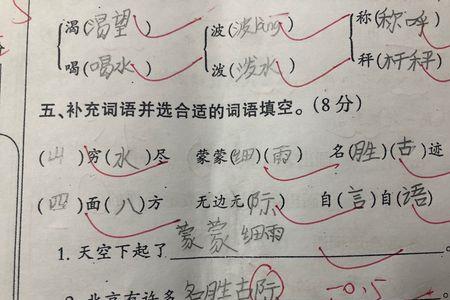 渴(渴望) 波(波làng) 称(称呼)
喝(喝水) 泼(泼水) 秤(杆秤)
五、补充词语并选合适的词语填空。(8分)
(山)穷(水)尽 蒙蒙(细)(雨) 名(胜)(古)迹
(四)面(八)方 无边无(际) 自(言)自(语)
1. 天空下起了蒙蒙细雨。
2. 北京有许多名胜古际 -0.5